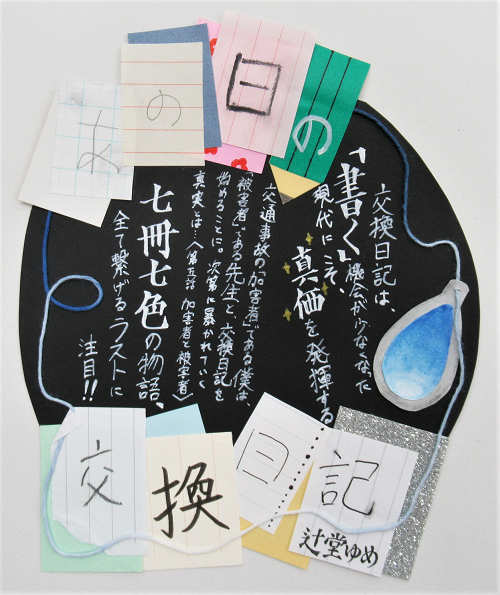 あの日の
交換日記は、
「書く」機会が少なくなった
現代にこそ、
真価を発揮する
交通事故の「加害者」である僕は、
「被害者」である先生と、交換日記を
始めることに。次第に暴かれていく
真実とは…〈第五話 加害者と被害者〉
七冊七色の物語、
全て繋げるラストに
注目!!
交換日記
辻堂ゆめ